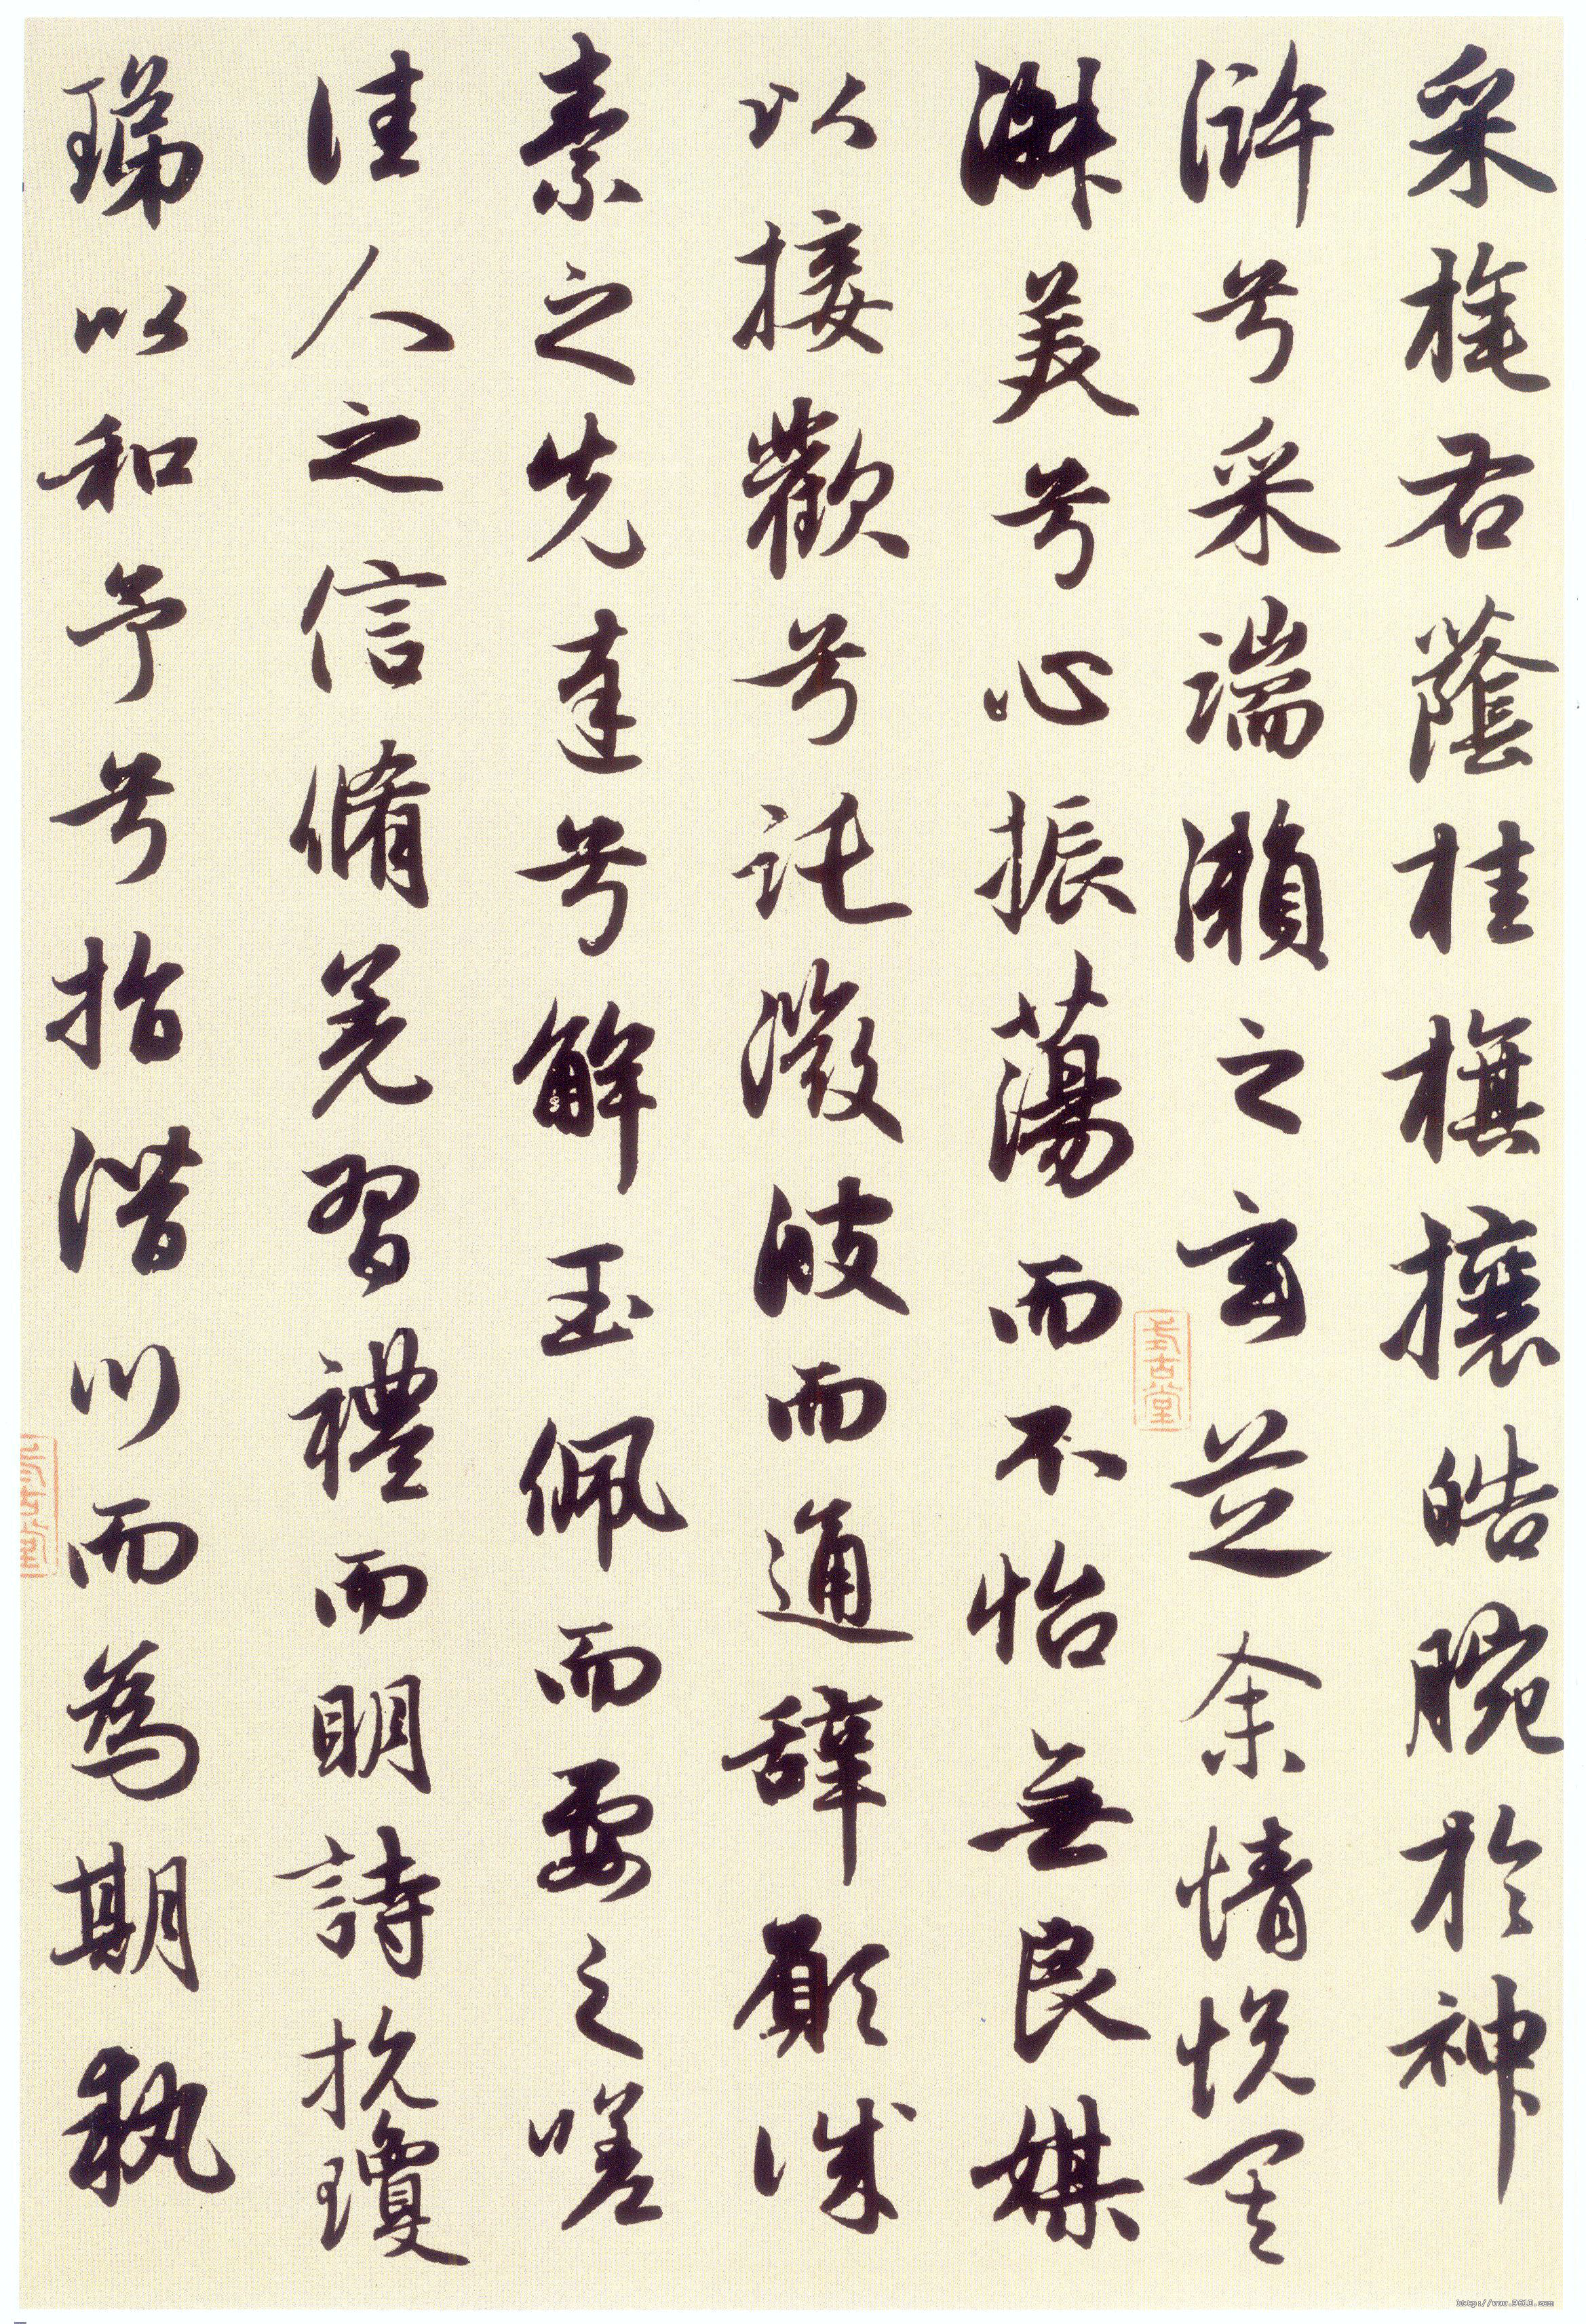 采旄右蔭桂旗攘皓腕於神
滸兮采湍瀨之玄芝余情悅其
淑美兮心振蕩而不怡無良媒
以接歡兮託微波而通辭願誠
素之先達兮解玉佩而要之嗟
佳人之信脩羌習禮而明詩抗瓊
珶以和予兮指潛川而為期執
http://www.9610.com